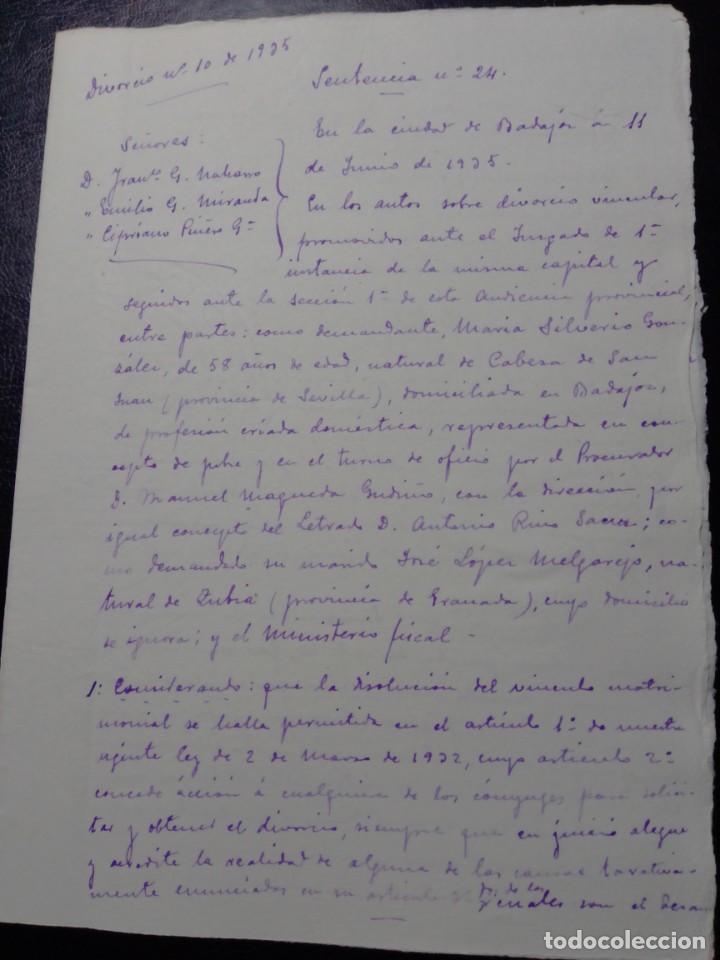 Divorcio nº 10 de 1935
Sentencia nº 24.
Señores:
D. Franco G. Naharro
" Emilio G. Miranda
" Cipriano Piñero Gª
En la ciudad de Badajóz á 11
de Junio de 1935.
En los autos sobre divorcio vincular,
promovidos ante el Juzgado de 1ª
instancia de la misma capital y
seguidos ante la sección 1ª de esta Audiencia provincial,
entre partes: como demandante, Maria Silverio Gon-
zález, de 58 años de edad, natural de Cabeza de San
Juan (provincia de Sevilla), domiciliada en Badajóz,
de profesión criada doméstica, representada en con-
cepto de pobre y en el turno de oficio por el Procurador
D. Manuel Maqueda Gudiño, con la dirección, por
igual concepto del Letrado D. Antonio Rino ; co-
mo demandado su marido José López Melgarejo, na-
tural de Zubia (provincia de Granada), cuyo domicilio
se ignora; y el Ministerio fiscal -
1: Considerando: que la disolución del vínculo matri-
monial se halla permitida en el artículo 1º de nuestra
vigente ley de 2 de Marzo de 1932, cuyo artículo 2º
concede acción á cualquiera de los cónyuges para solici-
tar y obtener el divorcio, siempre que en juicio alegue
y acredite la realidad de alguna de las causas taxativa-
mente enunciadas en su artículo 3º de los
cuales son el desam
todocoleccion
todocoleccion.net